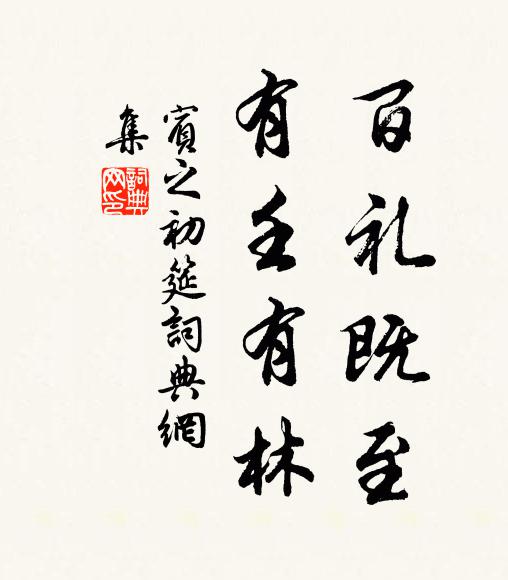 百礼既至
有壬有林
賓之初筵詞典網
集
詞典
网印